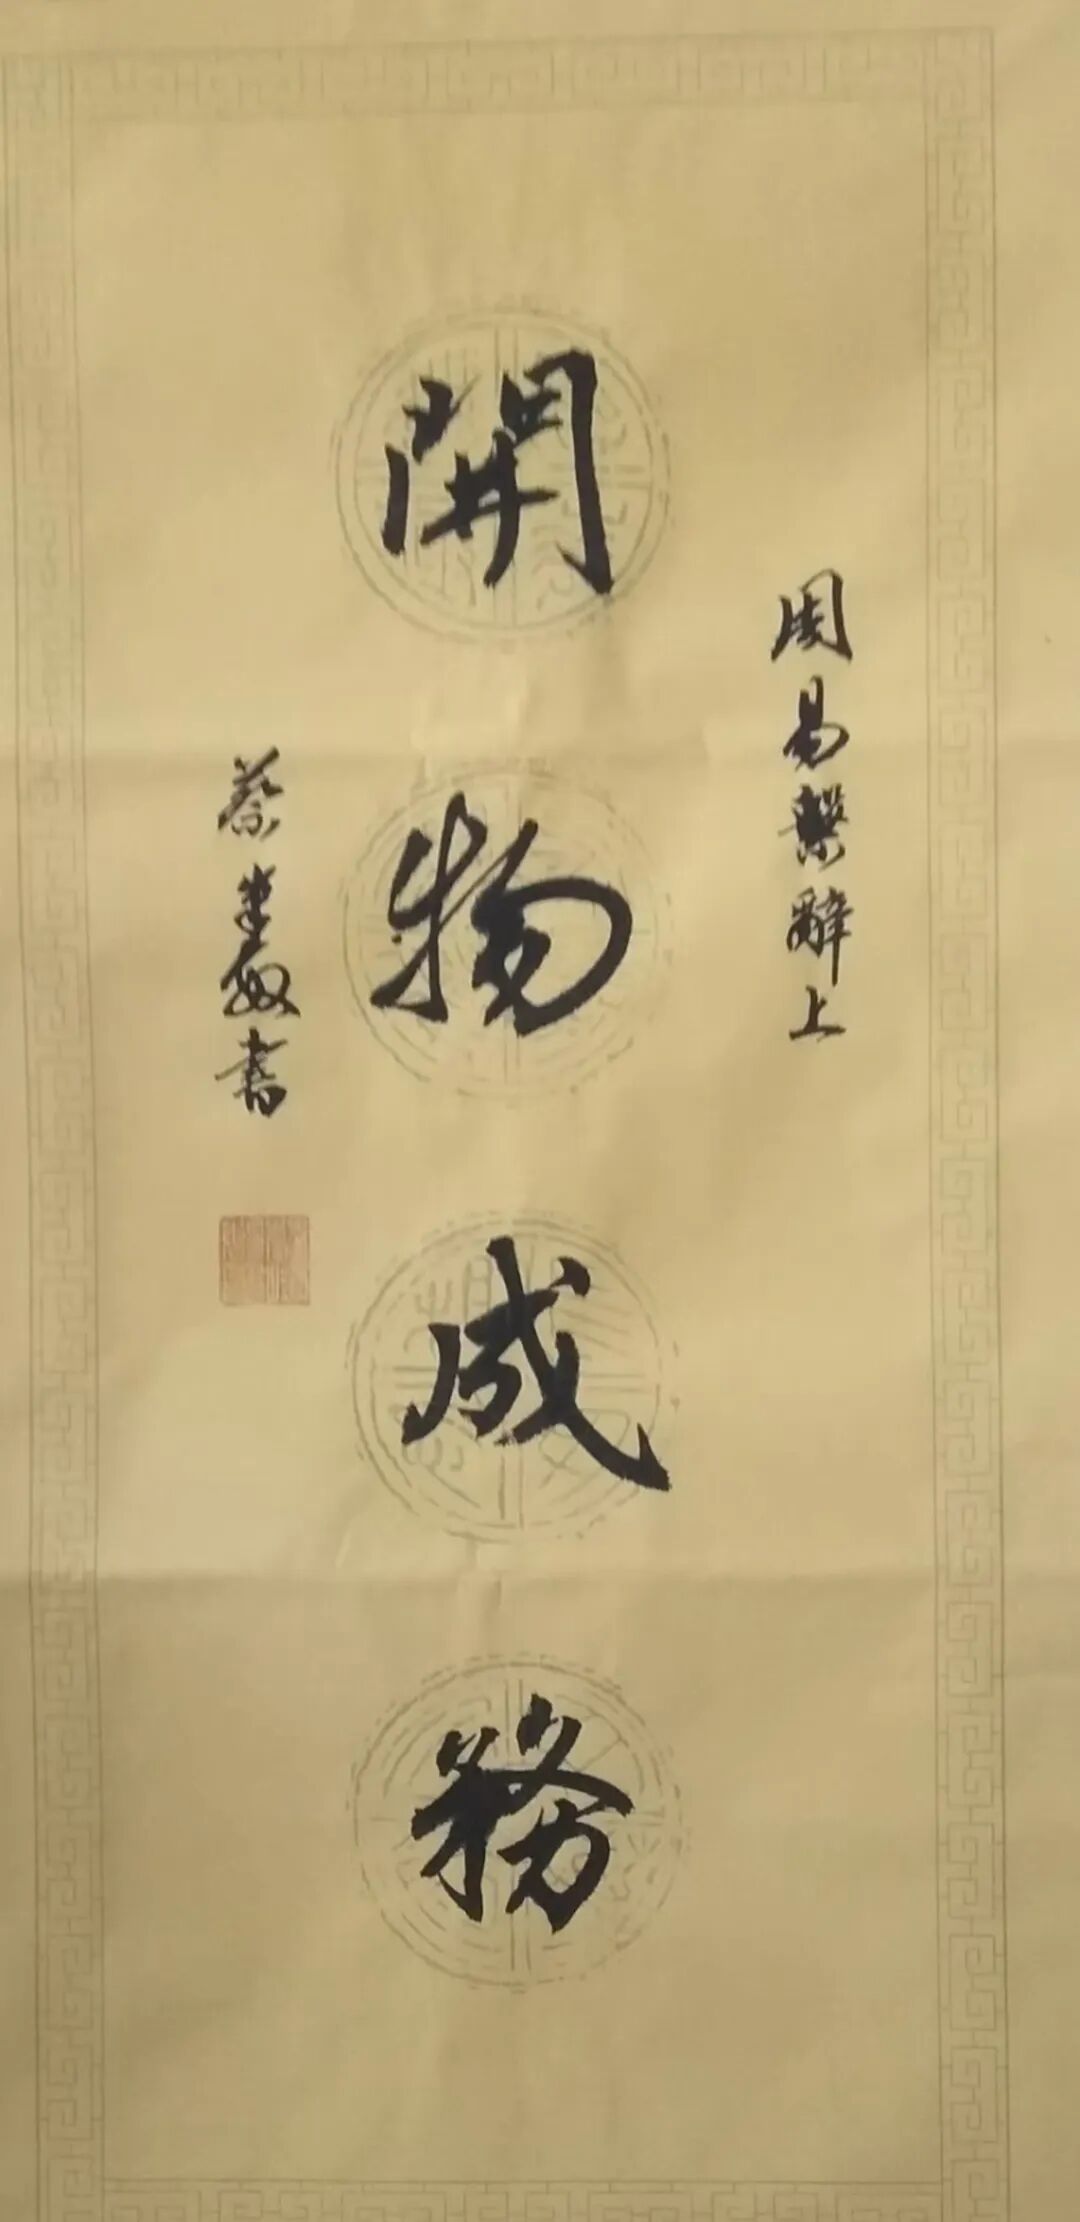 周易繫辭上
開物成務
蔡 敏書